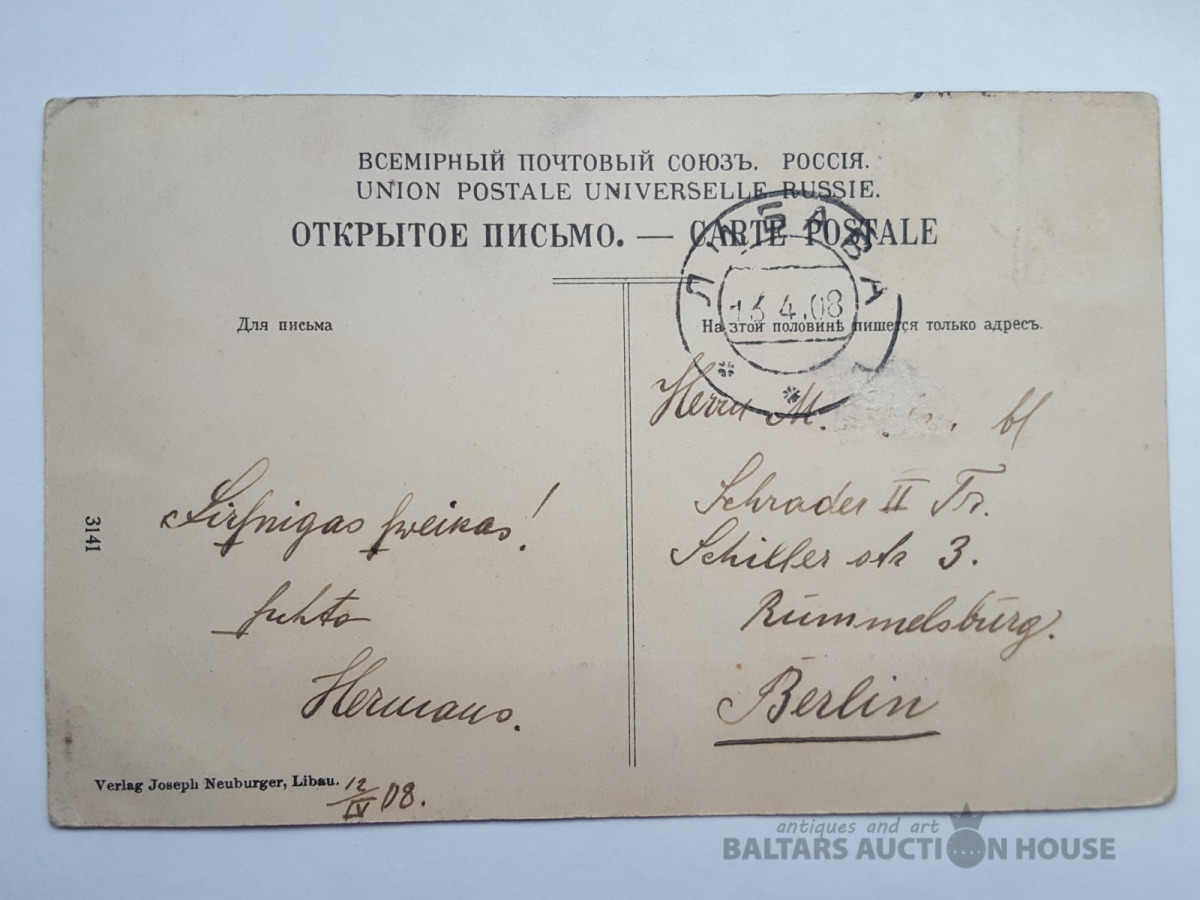 ВСЕМІРНЫЙ ПОЧТОВЫЙ СОЮЗЪ. РОССІЯ.
UNION POSTALE UNIVERSELLE RUSSIE.
ОТКРЫТОЕ ПИСЬМО. — CARTE POSTALE
ЛИБАВА
13.4.08
Для письма
На этой половинѣ пишется только адресъ.
Herrn M.
Schrader II Tr.
Schiller str 3.
Rummelsburg.
Berlin
Sirsnigas sweikas!
suhta
Hermans.
3141
Verlag Joseph Neuburger, Libau.
12/IV 08.
antiques and art
BALTARS AUCTION HOUSE